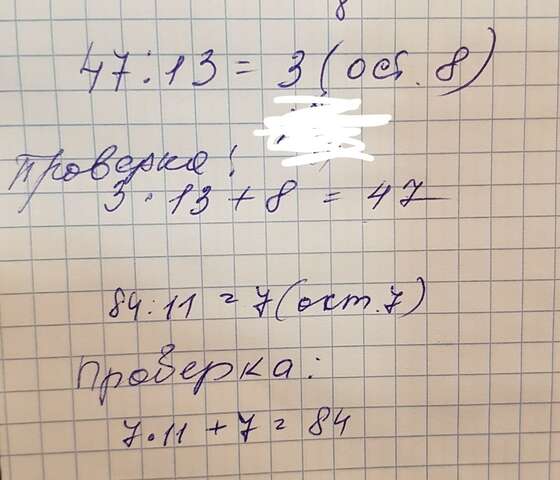 8
47:13 = 3 (ост. 8)
Проверка:
3 · 13 + 8 = 47
84:11 = 7 (ост. 7)
Проверка:
7 · 11 + 7 = 84